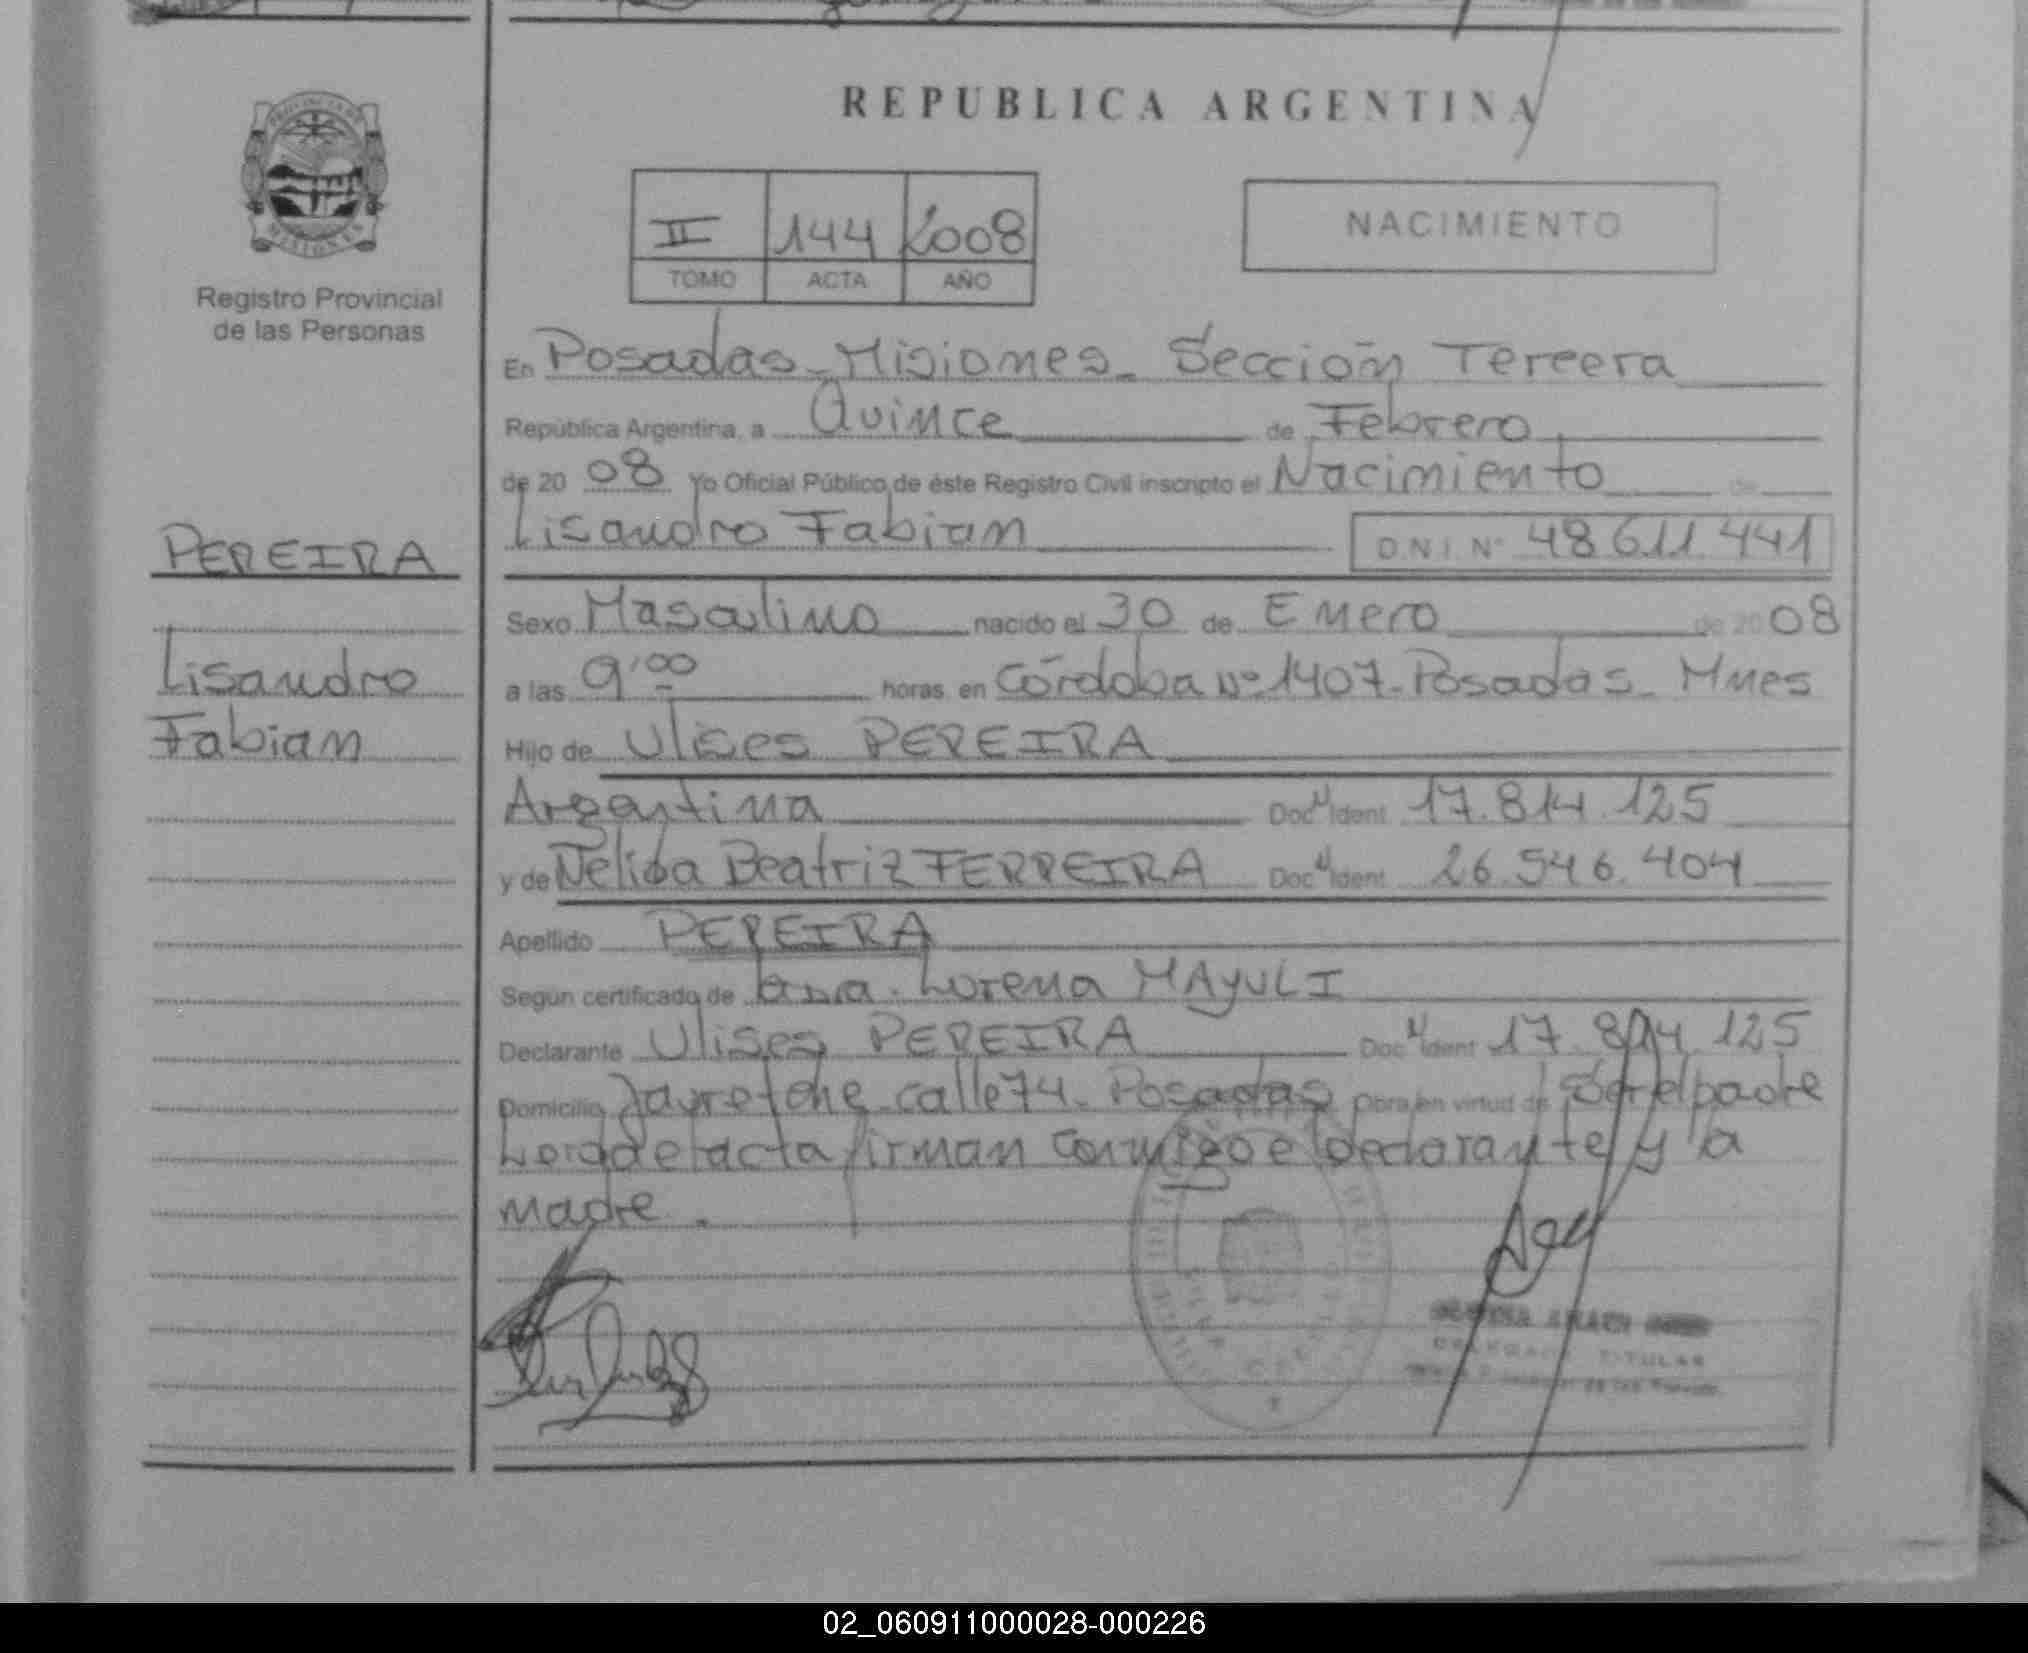 REPUBLICA ARGENTINA
II 144 2008
TOMO ACTA AÑO
NACIMIENTO
Registro Provincial
de las Personas
En Posadas - Misiones - Sección Tercera
República Argentina, a Quince de Febrero
de 20 08 Yo Oficial Público de éste Registro Civil inscripto el Nacimiento de
Lisandro Fabian D.N.I. Nº 48.611.441
PEREIRA
Lisandro
Fabian
Sexo Masculino nacido el 30 de Enero de 2008
a las 9:00 horas en Córdoba Nº 1407 - Posadas - Mnes
Hijo de Ulises PEREIRA
Argentina Doc Ident 17.814.125
y de Nelida Beatriz FERREIRA Doc Ident 26.546.404
Apellido PEREIRA
Según certificado de Lorena MAYULI
Declarante Ulises PEREIRA Doc Ident 17.814.125
Domicilio Jauretche calle 74 - Posadas Obra en virtud de Ser el padre
Leida el acta firman conmigo el declarante y la
madre.
TITULAR
02_060911000028-000226